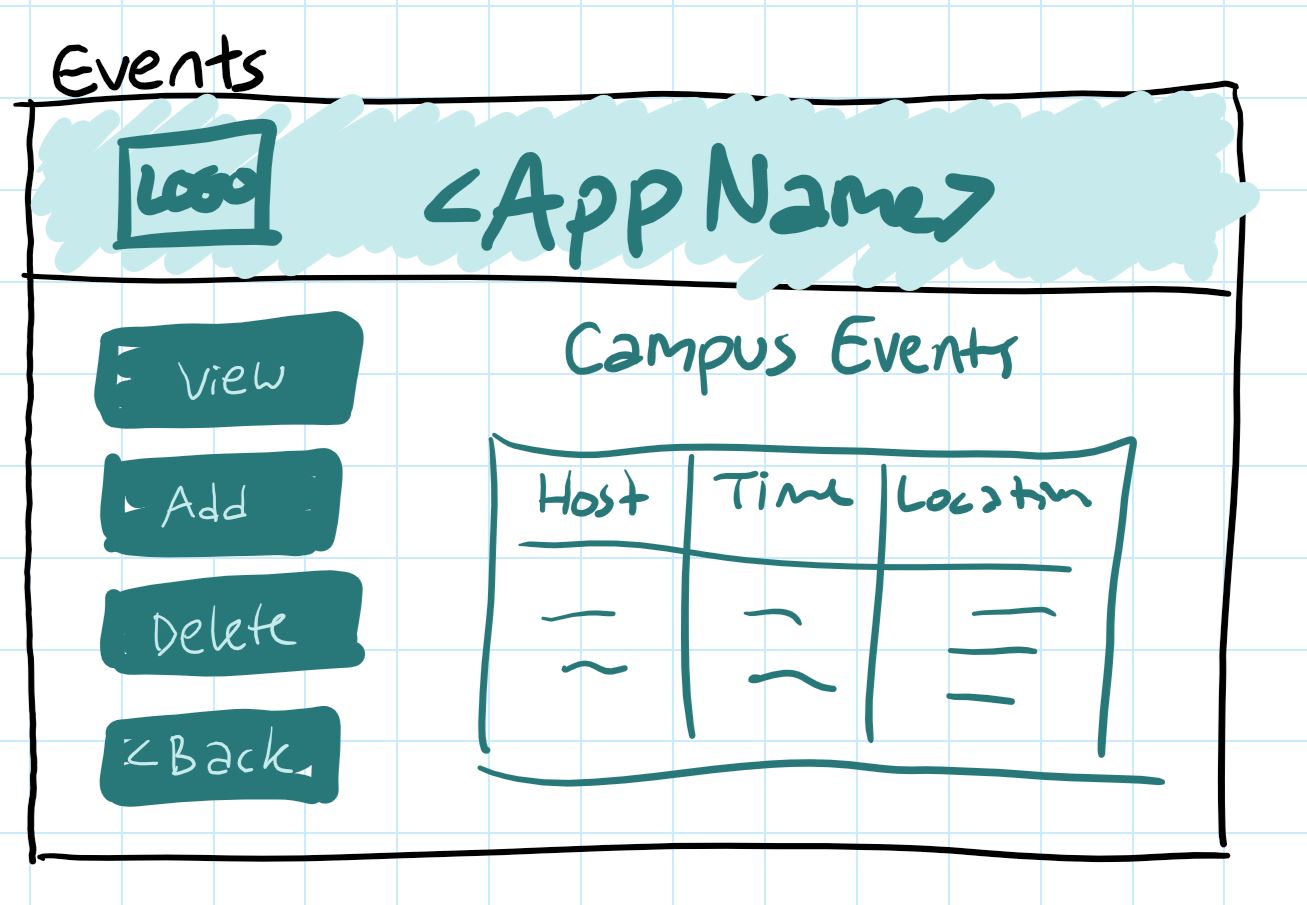 Events
LOGO
<App Name>
View
Add
Delete
<Back
Campus Events
Host Time Location